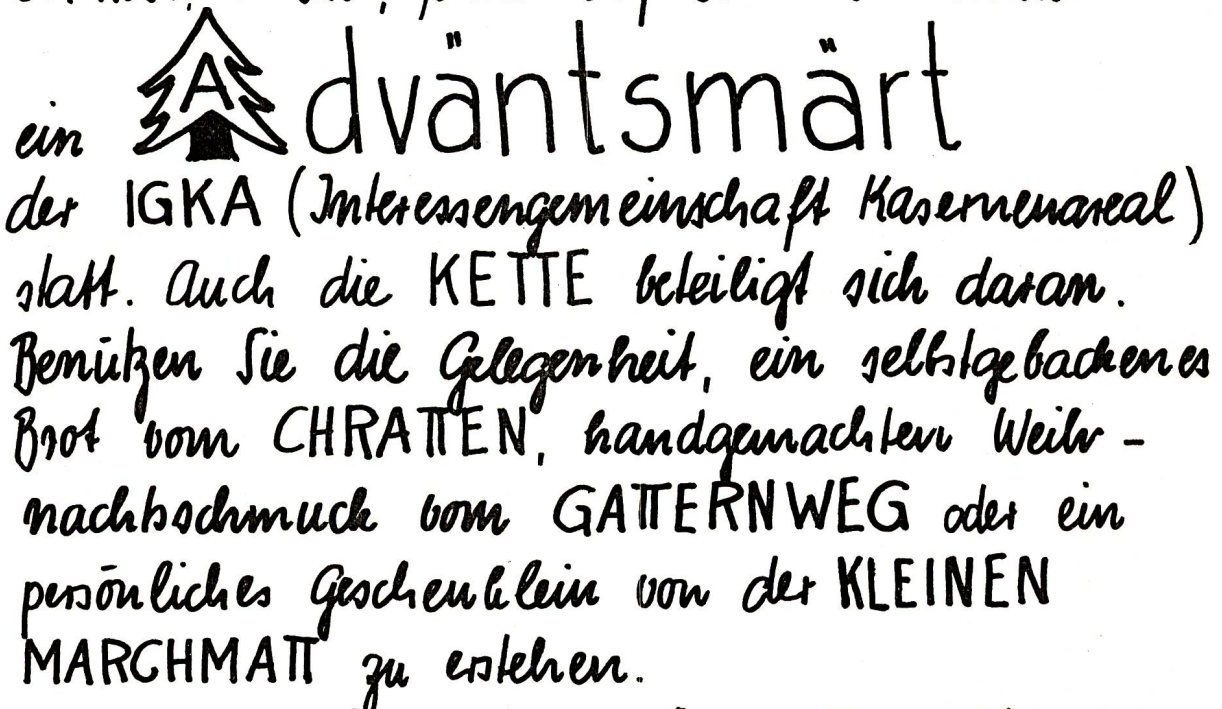 ein Adväntsmärt
der IGKA (Interessengemeinschaft Kasernenareal)
statt. Auch die KETTE beteiligt sich daran.
Benützen Sie die Gelegenheit, ein selbstgebackenes
Brot vom CHRATTEN, handgemachten Weih-
nachtsschmuck vom GATTERNWEG oder ein
persönliches Geschenklein von der KLEINEN
MARCHMATT zu erstehen.